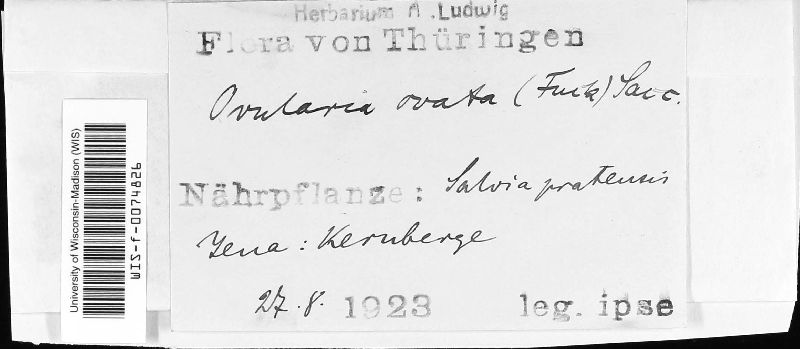 Herbarium A. Ludwig
Flora von Thüringen
Ovularia ovata (Fuck) Sacc.
Nährpflanze: Salvia pratensis
Jena: Kernberge
27.8. 1923 leg. ipse
University of Wisconsin-Madison (WIS)
WIS-f-0074826